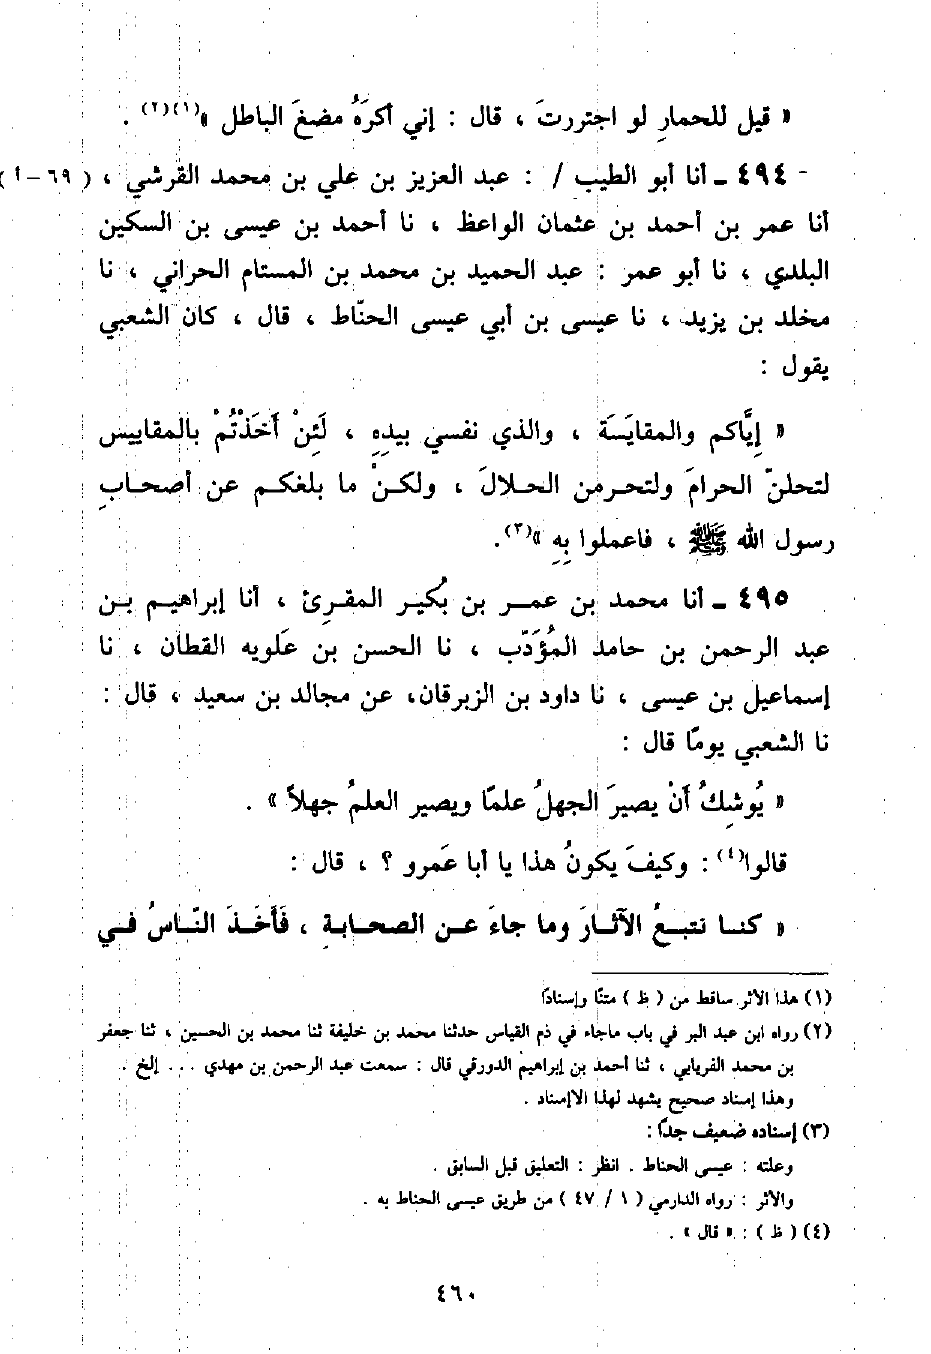 « قيل للحمارِ لو اجتررتَ ، قال : إني أكرَهُ مضغَ الباطل »(١)(٢) .
- ٤٩٤ ـ أنا أبو الطيب / : عبد العزيز بن علي بن محمد القرشي ، ( ٦٩ - أ )
أنا عمر بن أحمد بن عثمان الواعظ ، نا أحمد بن عيسى بن السكين
البلدي ، نا أبو عمر : عبد الحميد بن محمد بن المستام الحراني ، نا
مخلد بن يزيد ، نا عيسى بن أبي عيسى الحنّاط ، قال ، كان الشعبي
يقول :
« إِيَّاكم والمقايَسَة ، والذي نفسي بيدِهِ ، لَئِنْ أَخَذْتُمْ بالمقاييس
لتحلنّ الحرامَ ولتحرمن الحلالَ ، ولكنْ ما بلغكم عن أصحابِ
رسول الله ﷺ ، فاعملوا بِهِ »(٣).
٤٩٥ ـ أنا محمد بن عمر بن بُكير المقرِئ ، أنا إبراهيم بن
عبد الرحمن بن حامد المُؤَدّب ، نا الحسن بن عَلويه القطان ، نا
إسماعيل بن عيسى ، نا داود بن الزبرقان، عن مجالد بن سعيد ، قال :
نا الشعبي يومًا قال :
« يُوشِكُ أَنْ يصيرَ الجهلُ علمًا ويصير العلمُ جهلاً » .
قالوا(٤) : وكيفَ يكونُ هذا يا أبا عَمرو ؟ ، قال :
« كنا نتبعُ الآثارَ وما جاءَ عن الصحابةِ ، فَأَخَذَ النّاسُ في
(١) هذا الأثر ساقط من ( ظ ) متنًا وإسنادًا
(٢) رواه ابن عبد البر في باب ماجاء في ذم القياس حدثنا محمد بن خليفة ثنا محمد بن الحسين ، ثنا جعفر
بن محمد الفريابي ، ثنا أحمد بن إبراهيم الدورقي قال : سمعت عبد الرحمن بن مهدي . . . إلخ .
وهذا إسناد صحيح يشهد لهذا الاإسناد .
(٣) إسناده ضعيف جدًا :
وعلته : عيسى الحناط . انظر : التعليق قبل السابق .
والأثر : رواه الدارمي ( ١ / ٤٧ ) من طريق عيسى الحناط به .
(٤) ( ظ ) : « قال » .
٤٦٠